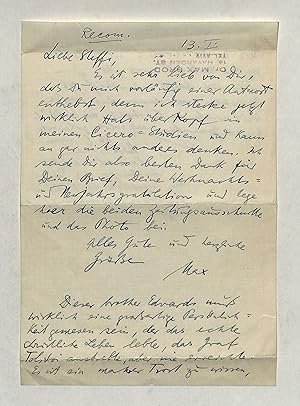 Recom.
13. I.
Dr. MAX BROD
16 HAYARDEN ST.
TEL-AVIV
Liebe Steffi,
Es ist sehr lieb von Dir,
daß du mich vorläufig einer Antwort
enthebst, denn ich stecke jetzt
wirklich Hals über Kopf in
meinen Cicero-Studien und kann
an gar nichts anderes denken. Ich
sende dir also besten Dank für
Deinen Brief, Deine Weihnachts-
und Neujahrsgratulation und lege
hier die beiden Zeitungsausschnitte
und das Photo bei.
Alles Gute und herzliche
Grüße
Max
Dieser brother Edvards muß
wirklich eine großartige Persönlich-
keit gewesen sein, der das echte
christliche Leben lebte, das Graf
Tolstoi anstrebte, aber nie erreichte.
Es ist ein wahrer Trost zu wissen,